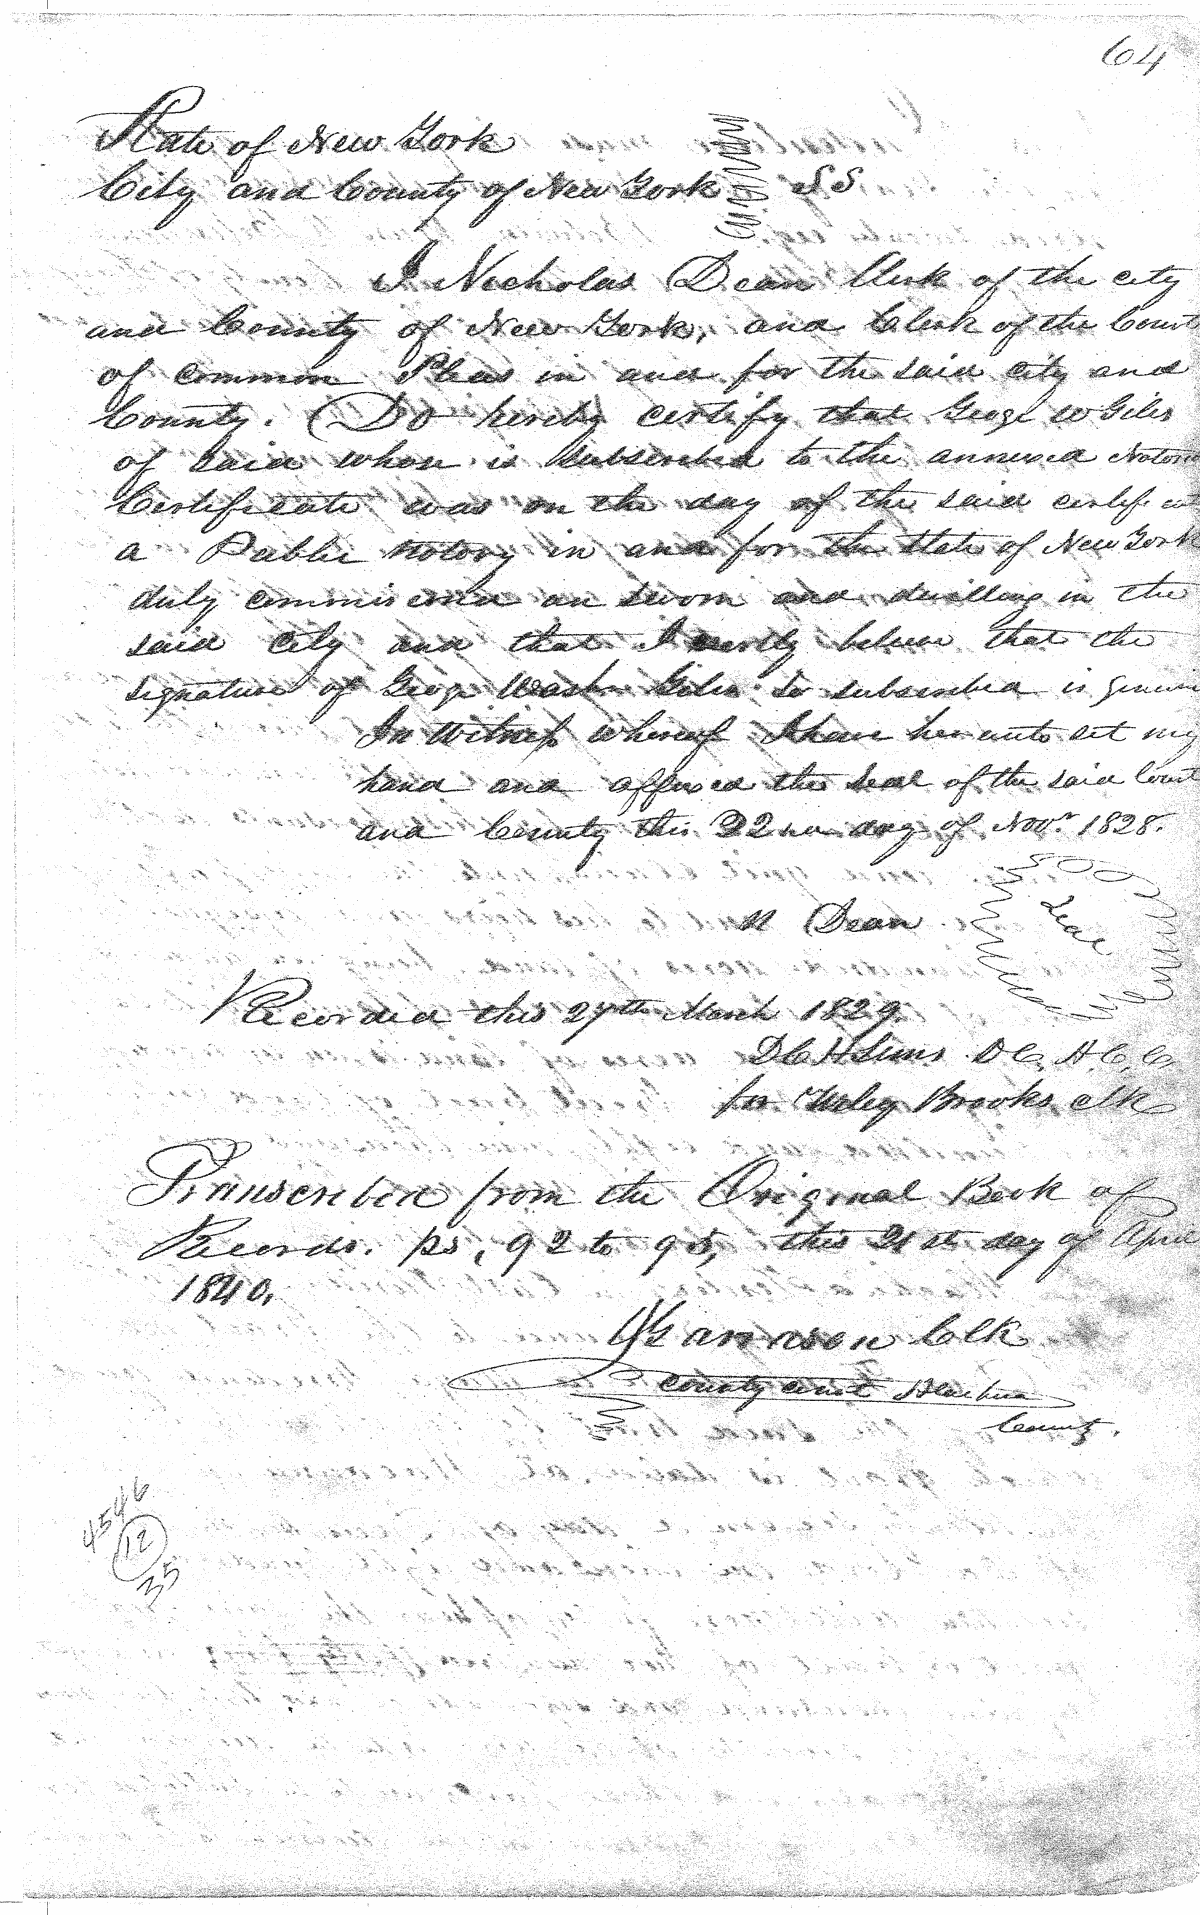 64
State of New York
City and County of New York SS
I Nicholas Dean Clerk of the city
and County of New York, and Clerk of the Court
of common Pleas in and for the said city and
County. Do hereby certify that Geoge W Giles
of said whose is subscribed to the annexed Notori
Certificate was on the day of the said certif
a Public notory in and for the State of New York
duly commissioned an sworn and dwelling in the
said city and that I verily believe that the
signature of Geoge Washn Giles so subscribed is genuin
In Witness whereof I have hereunto set my
hand and affixed the seal of the said Court
and County this 22nd day of Novr 1828.
N Dean
Seal
Recorded this 27th March 1829.
D C H Sims D C. H. C. C
for Wiley Brooks clk
Transcribed from the Original Book of
Records. ps, 92 to 95, this 21st day of April
1840.
Garrason Clk
County court Alachua
County.
4546
12
35